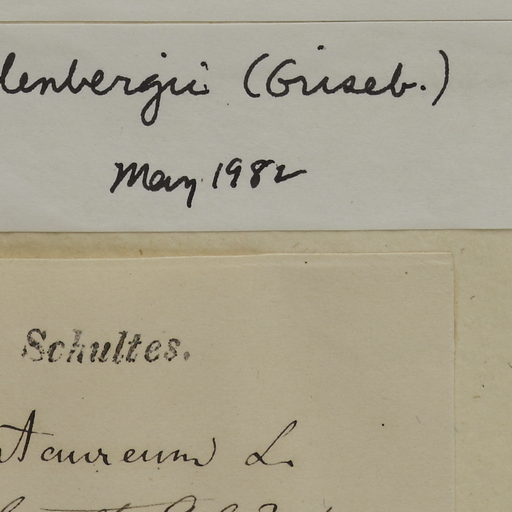 lenbergii (Griseb.)
May 1982
Schultes.
taureum L.